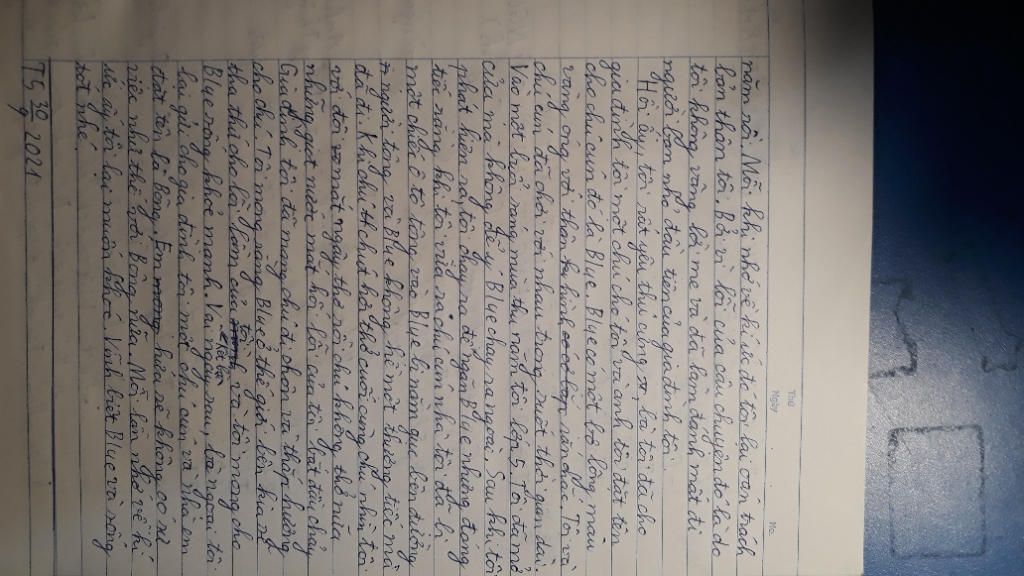 THỨ
NGÀY
No.
năm rồi. Mỗi khi nhớ về kí ức đó tôi lại oán trách
bản thân tôi. Bởi vì lỗi của câu chuyện đó là do
tôi không vâng lời mẹ và đã làm đánh mất đi
người bạn nhỏ đầu tiên của gia đình tôi.
Hồi ấy, tôi rất yêu thú cưng, là tôi đã cho
gia đình tôi một chú cho tôi và anh tôi đặt tên
cho chú cún đó là Blue. Blue có một bộ lông màu
vàng óng với thân hình săn chắc. Tôi và
chú cún đã chơi với nhau trong suốt thời gian dài.
Vào một buổi sáng mùa thu, năm tôi lớp 5, tôi đã mở
cửa mà không để ý Blue chạy ra ngoài. Sau khi tôi
phát hiện ra, tôi chạy ra để ngăn Blue nhưng đáng
tiếc rằng khi tôi vừa ra chú cún nhà tôi đã bị
một chiếc ô tô tông vào. Blue bị nằm gục bên đường
người tông và Blue không hề một thương tiếc mà
đã đi. Khi chú H hút hơi thở cuối cùng chú nhìn tôi
với đôi mắt ngây thơ, rồi chú không thở nữa
những giọt nước mắt hối lỗi của tôi bắt đầu chảy
Gia đình tôi đã mang chú đi chôn và thắp hương
cho chú. Tôi mong rằng Blue ở thế giới bên kia sẽ
tha thứ cho lỗi lầm của tôi, và tôi mong cho
Blue sống khỏe mạnh. Vài ngày sau, bà ngoại tôi
lại gửi cho gia đình tôi một chú cún, và nhà em
đặt tên là Bông. Em hứa sẽ không có sự
việc như thế với Bông nữa. Mỗi lần nhớ về kí
ức ấy tôi lại muốn khóc. Vĩnh biệt Blue và sống
tốt nhé.
T5 30/9 2021